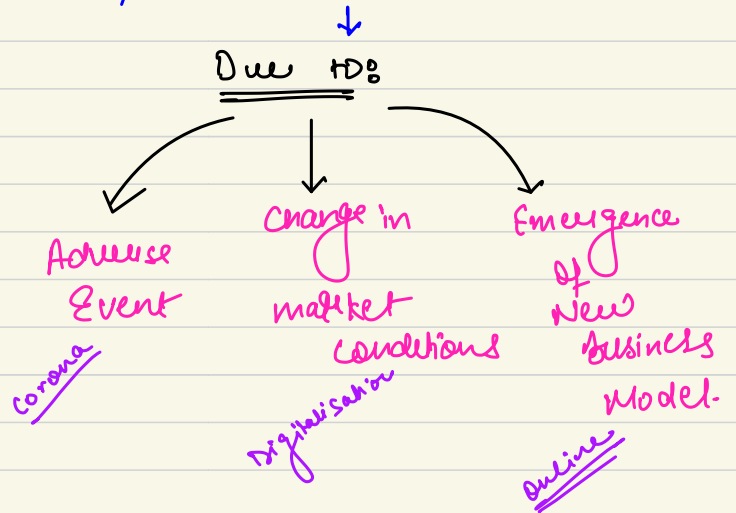 Due to:
Adverse
Event
Corona
Change in
market
conditions
Digitalisation
Emergence
Of
New
Business
Model.
Online